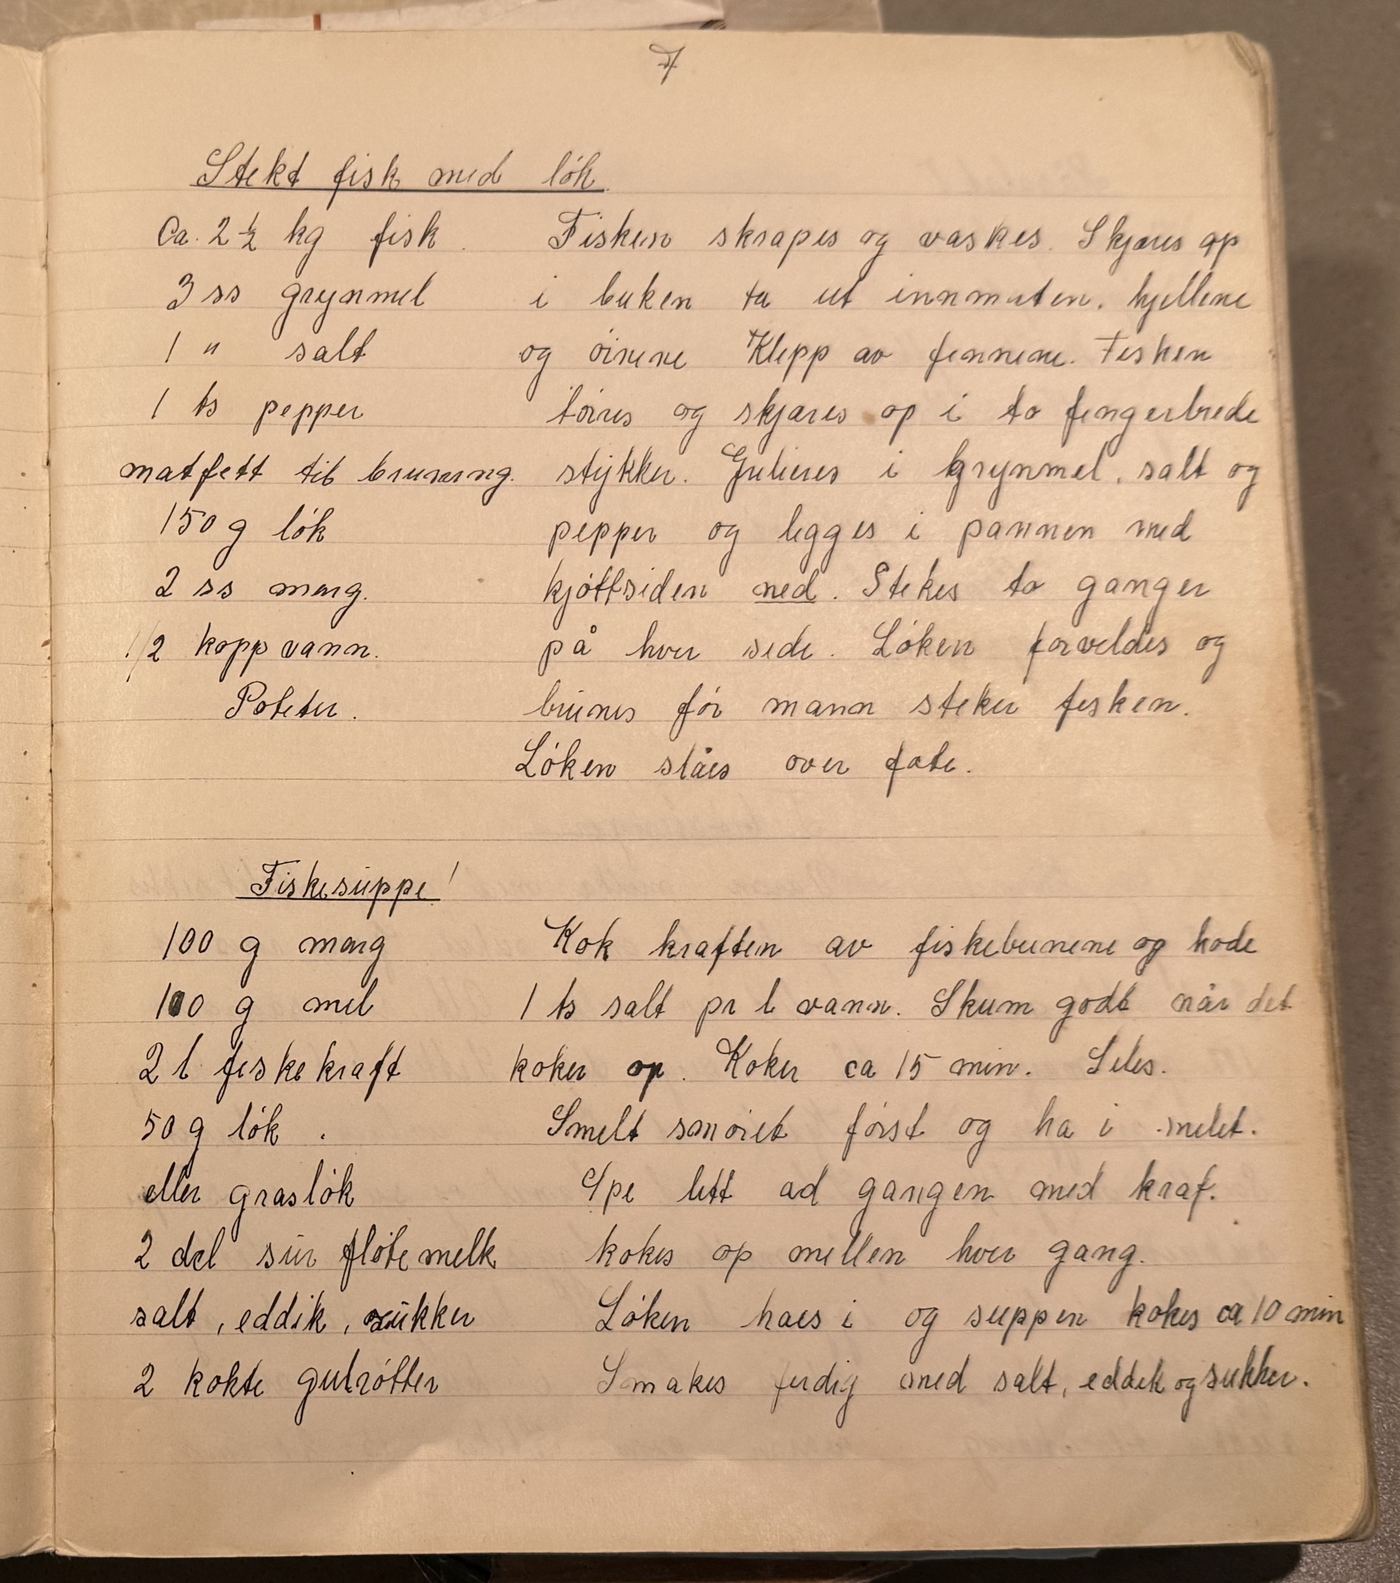 7
Stekt fisk med løk
Ca. 2 ½ kg fisk. Fisken skrapes og vaskes. Skjæres op
3 ss grynmel i buken ta ut innmaten. hjellene
1 " salt og øinene Klepp av finnene. Fisken
1 ts pepper tørres og skjæres op i to fingerbrede
matfett til bruning. stykker. Gnlieres i grynmel, salt og
150 g løk pepper og legges i pannen med
2 ss marg. kjøttsiden ned. Stekes to ganger
1/2 kopp vann. på hver side. Løken forveldes og
Poteter. brunes før mann steker fisken.
Løken slåes over fate.
Fiskesuppe!
100 g marg Kok kraften av fiskebeinene og hode
100 g mel 1 ts salt pr l vann. Skum godt når det
2 l fiskekraft koker op. Koker ca 15 min. Siles.
50 g løk. Smelt smøret først og ha i melet.
eller grasløk Spe litt ad gangen med kraf.
2 del sur fløtemelk kokes op mellen hver gang.
salt, eddik, sukker Løken haes i og suppen kokes ca 10 min
2 kokte gulrøtter Smakes ferdig med salt, eddik og sukker.